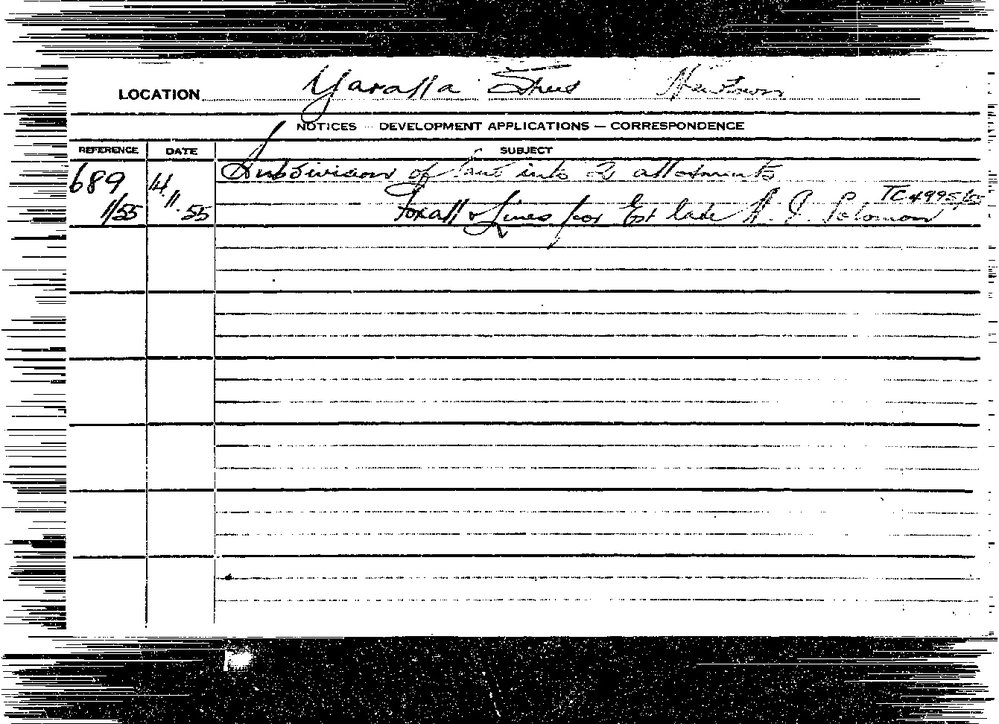 LOCATION Yaralla Street Newtown
NOTICES — DEVELOPMENT APPLICATIONS — CORRESPONDENCE
REFERENCE DATE SUBJECT
689 14 Subdivision of land into 2 allotments
TC 4995/55
1/55 11.55 Foxall & Lines for Est late A. J. Solomon